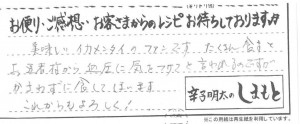 お便り・ご感想・お客さまからのレシピお待ちしております♪
美味しいイカメンタイのファンです。たくさん食すと
お医者様から血圧に気をつけてと言われるのですが
かまわずに食してしまいます
これからもよろしく!
辛子明太の しまもと
※この用紙は再生紙を利用しています。